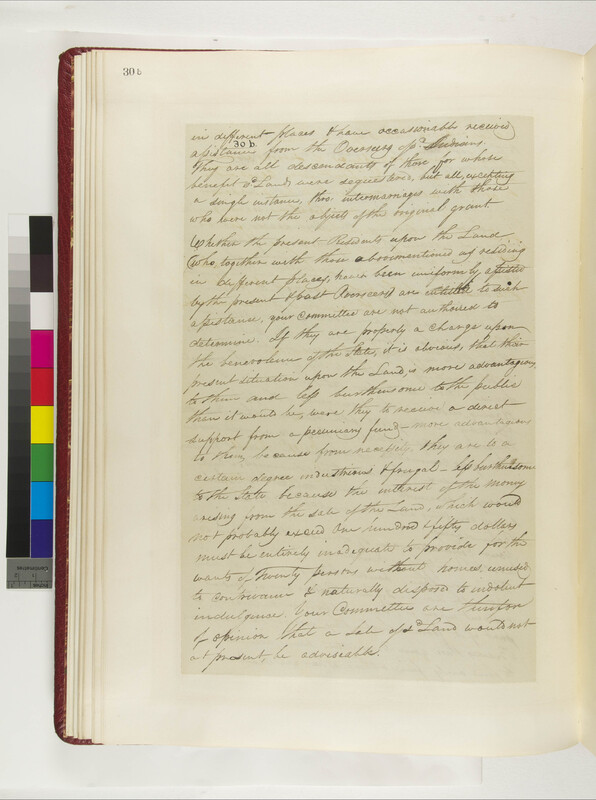 30 b
in different places & have occasionally received
30 b.
assistance from the Overseers of sd. Indians.
They are all descendants of those, for whose
benefit sd. Lands were sequestered, but all, excepting
a single instance, thro intermarriages with those
who were not the objects of the original grant
Whether the present Residents upon the Land
(who, together with those abovementioned as residing
in different places, have been uniformly assisted
by the present & past Overseers) are entitled to such
assistance, your Committee are not authorised to
determine. If they are properly a charge upon
the benevolence of the State, it is obvious, that their
present situation upon the Land, is more advantageous
to them and less burthensome to the public
than it would be, were they to receive a direct
support from a pecuniary fund – more advantageous
to them, because from necessity, they are to a
certain degree industrious & frugal – less burthensome
to the State because the interest of the money
arising from the sale of the Land, which would
not probably exceed One hundred & fifty dollars
must be entirely inadequate to provide for the
wants of Twenty persons without homes, unused
to contrivance & naturally disposed to indolent
indulgence. Your Committee are therefore
of opinion that a sale of sd Land would not
at present, be adviseable.